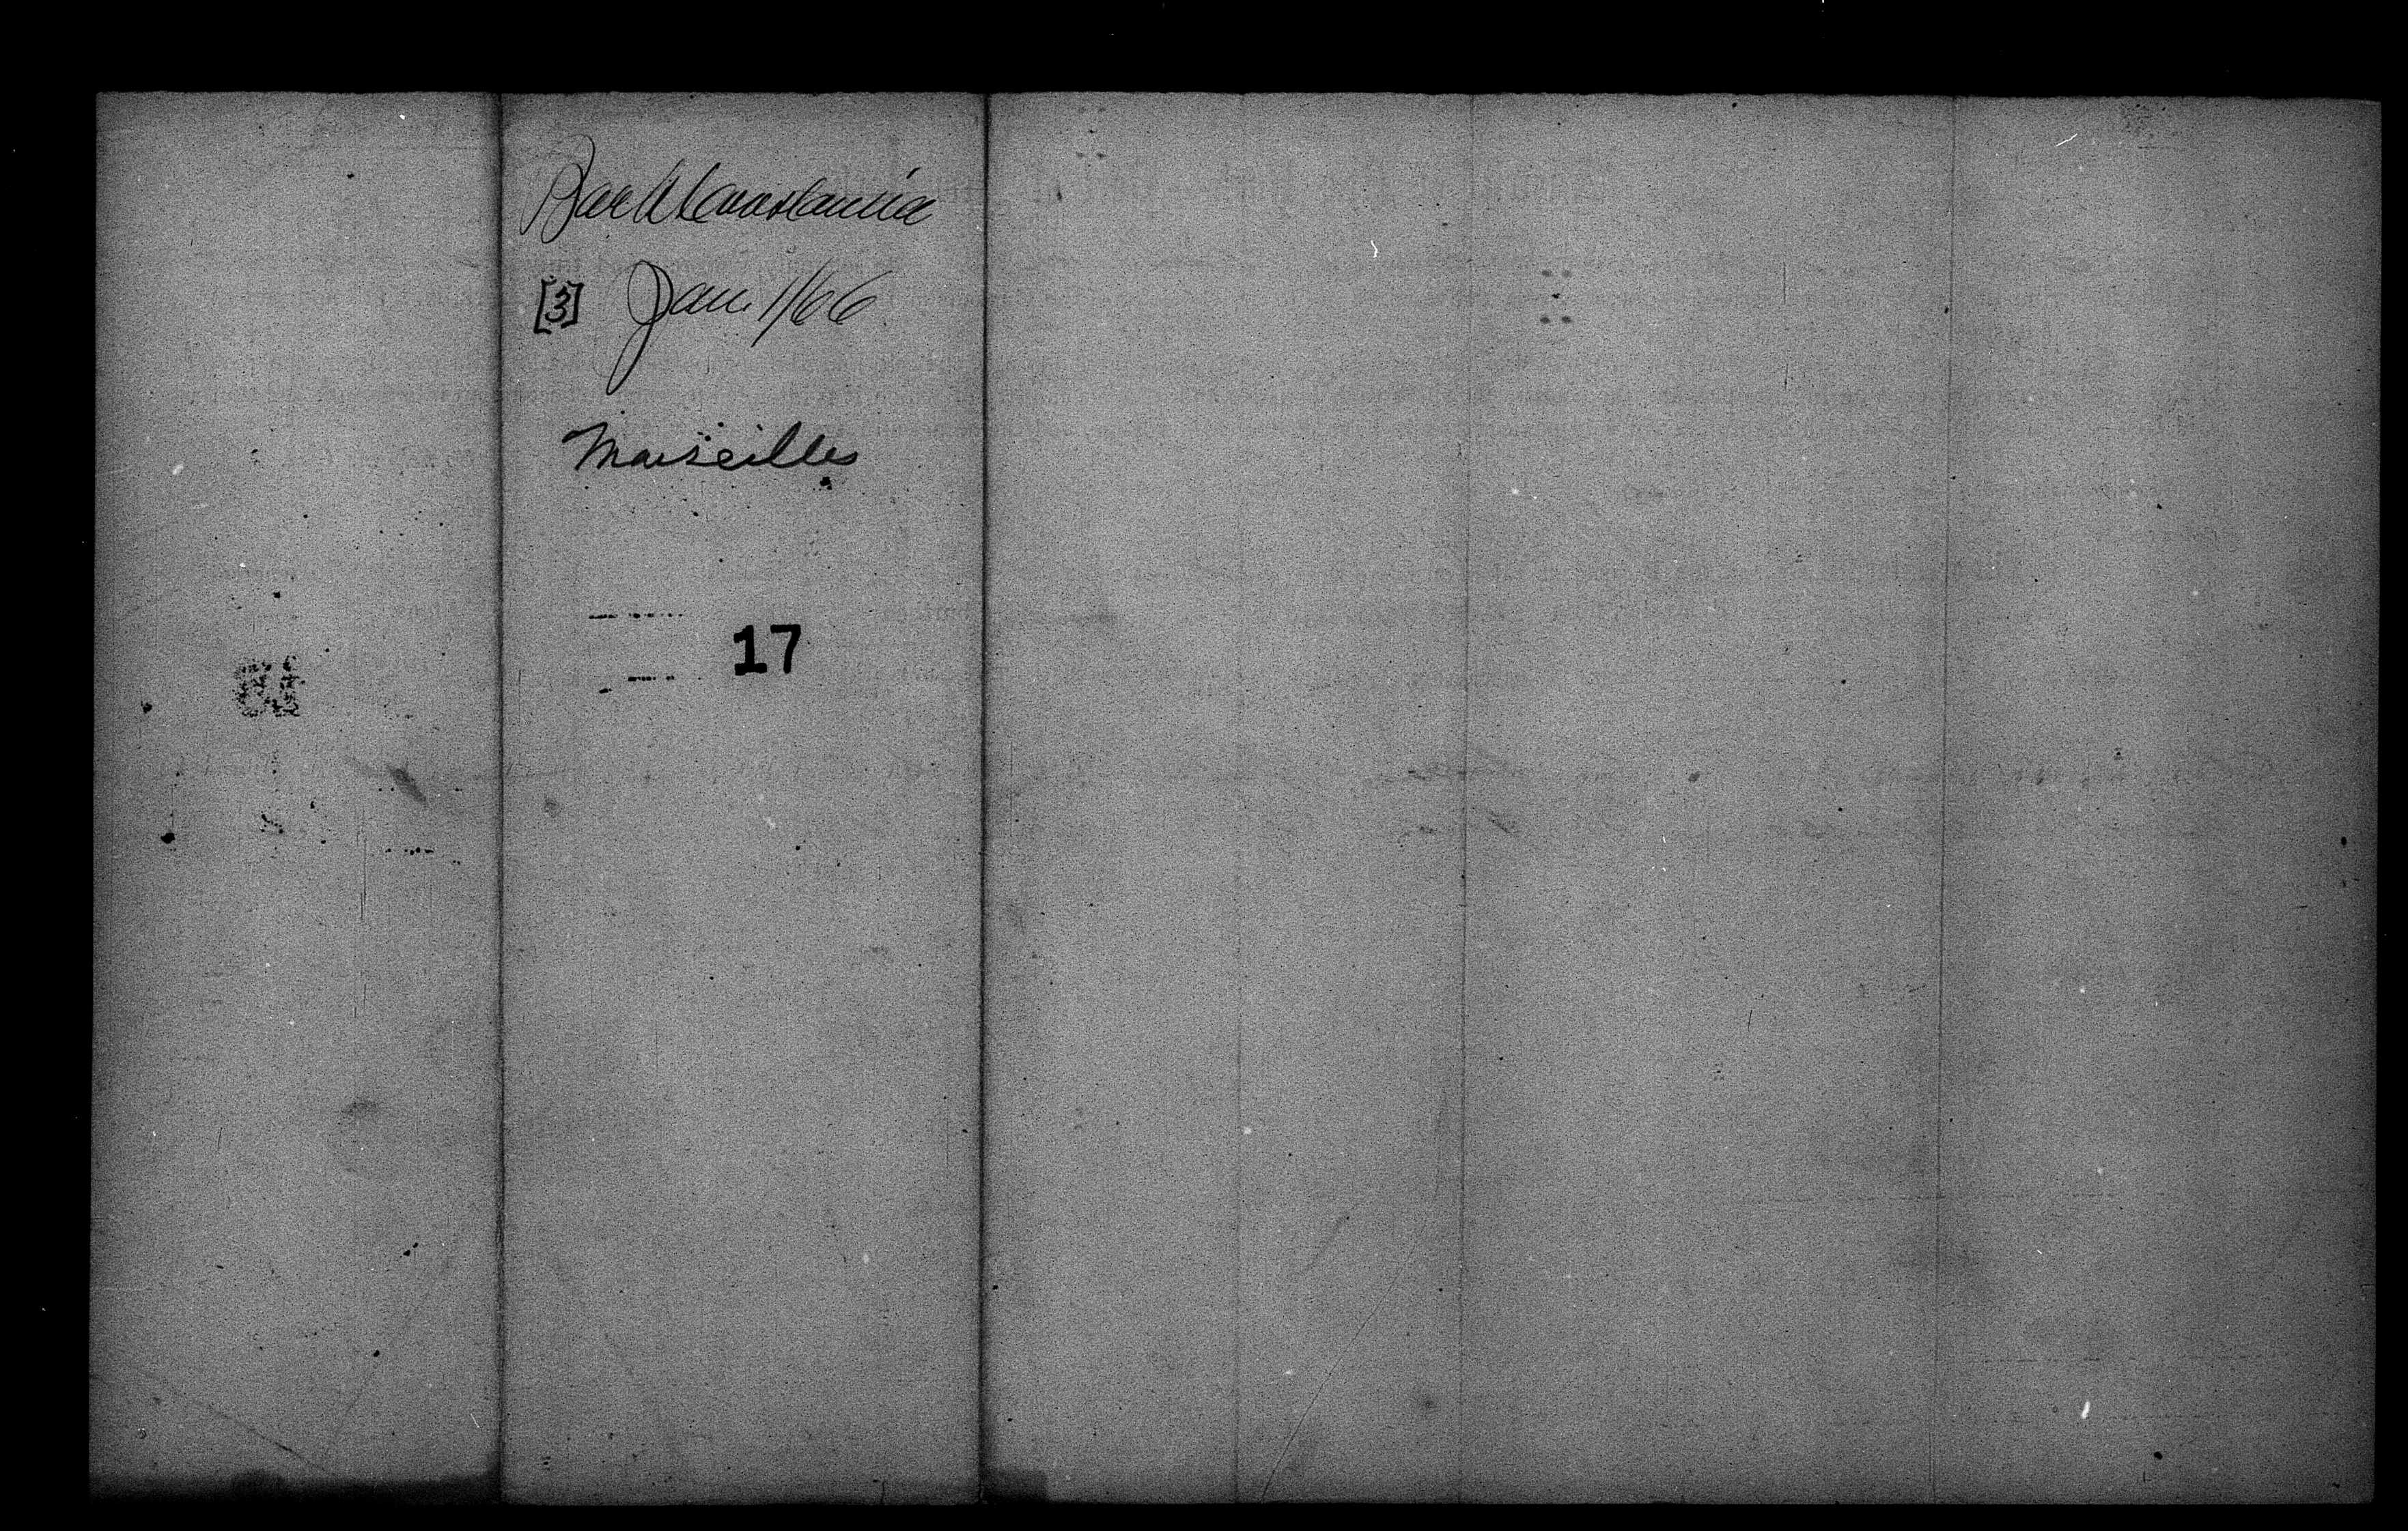 Bark
[3] Jan. 1/66
Marseilles
17